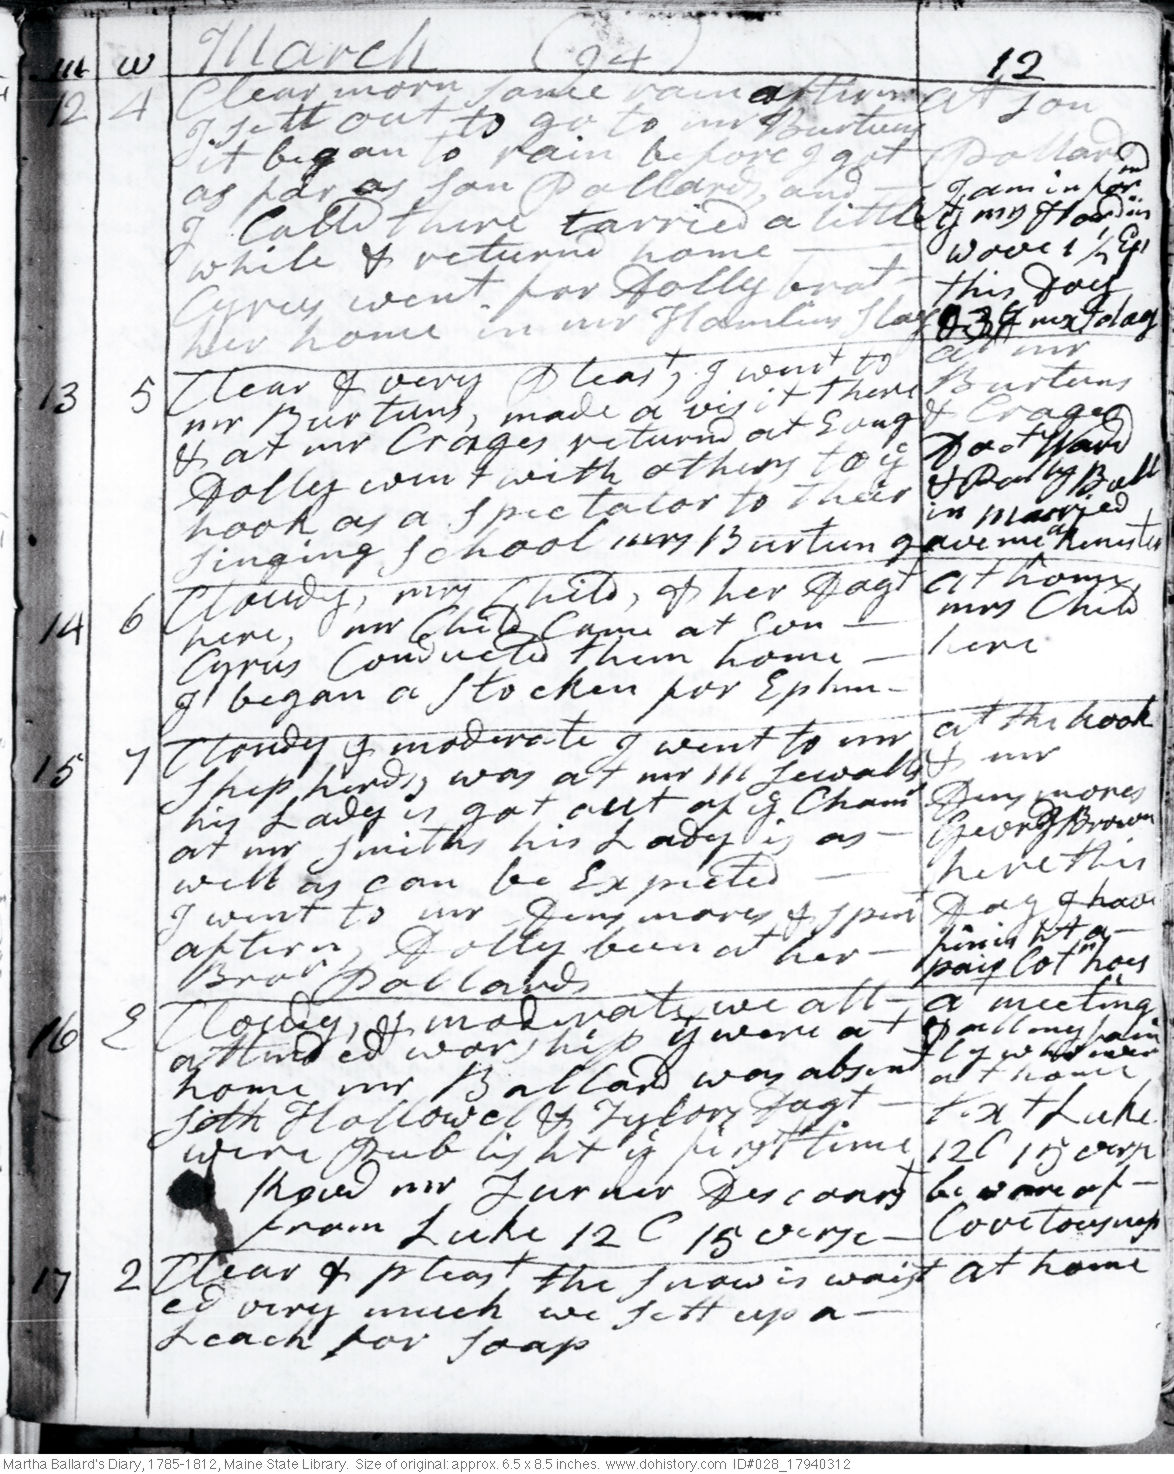 m w March (94) 12
12 4 Clear morn some rain aftern
I sett out to go to mr Burtuns
it began to rain before I got
as far as son Pollards, and
I Calld there tarried a little
while & returnd home
Cyrus went for Dolly brot
her home in mr Hamlins Slay
at son
Pollards
I am informd
mrs Hardin
wove 1 ½
this Day
& next day
13 5 Clear & very Pleast, I went to
mr Burtuns, made a visit there
& at mr Crages returnd at Evng
Dolly went with others to ye
hook as a spectator to their
singing school mrs Burtun gave me
at mr
Burtuns
& Crages
Doct Ward
& Polly Ball
in married
14 6 Cloudy, mrs Child, & her Dagt
here, mr Child Came at Evn
Cyrus Conducted them home
I began a stocken for Ephm
at home,
mrs Child
here
15 7 Cloudy & moderate I went to mr
Shepherds, was at mr m Sewalls
his Lady is got out of ye Cham
at mr Smiths his Lady is as
well as can be Expected
I went to mr Densmores & spent
aftern, Dolly been at her
Bror Pollards
at the hook
& mr
Densmores
Georg Brown
here this
Day I have
finisht a
pair hoes
16 E Cloudy, & moderate, we all
attended worship yt were at
home mr Ballard was absent
Seth Hollowel & Tylors Dagt
were Publisht ye first time
Revd mr Turner Descoarst
from Luke 12 C 15 verse
a meeting
all my fam
ly who wer
at home
text Luke
12 C 15 verse
beware of
Covetousness
17 2 Clear & pleast the snow is waist
ed very much we sett up a
Leach for soap
at home
Martha Ballard's Diary, 1785-1812, Maine State Library. Size of original: approx. 6.5 x 8.5 inches. www.dohistory.com ID#028_17940312